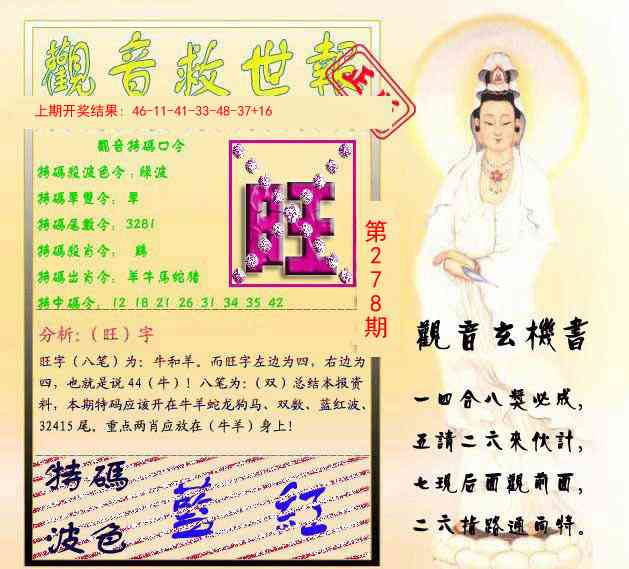 觀音救世報
上期开奖结果：46-11-41-33-48-37+16
觀音特碼口令
特碼殺波色令：綠波
特碼單雙令： 單
特碼尾數令： 3281
特碼殺肖令： 鷄
特碼出肖令： 羊牛馬蛇猪
特中碼令： 12 18 21 26 31 34 35 42
旺
第278期
分析：（旺）字
旺字（八笔）为：牛和羊。而旺字左边为四，右边为
四，也就是说44（牛）！八笔为：（双）总结本报资
料，本期特码应该开在牛羊蛇龙狗马、双数、蓝红波、
32415尾。重点两肖应放在（牛羊）身上！
特碼
波色
藍 紅
觀音玄機書
一四合八獎必成，
五請二六來伙計，
七現后面觀前面，
二六指路通両特。